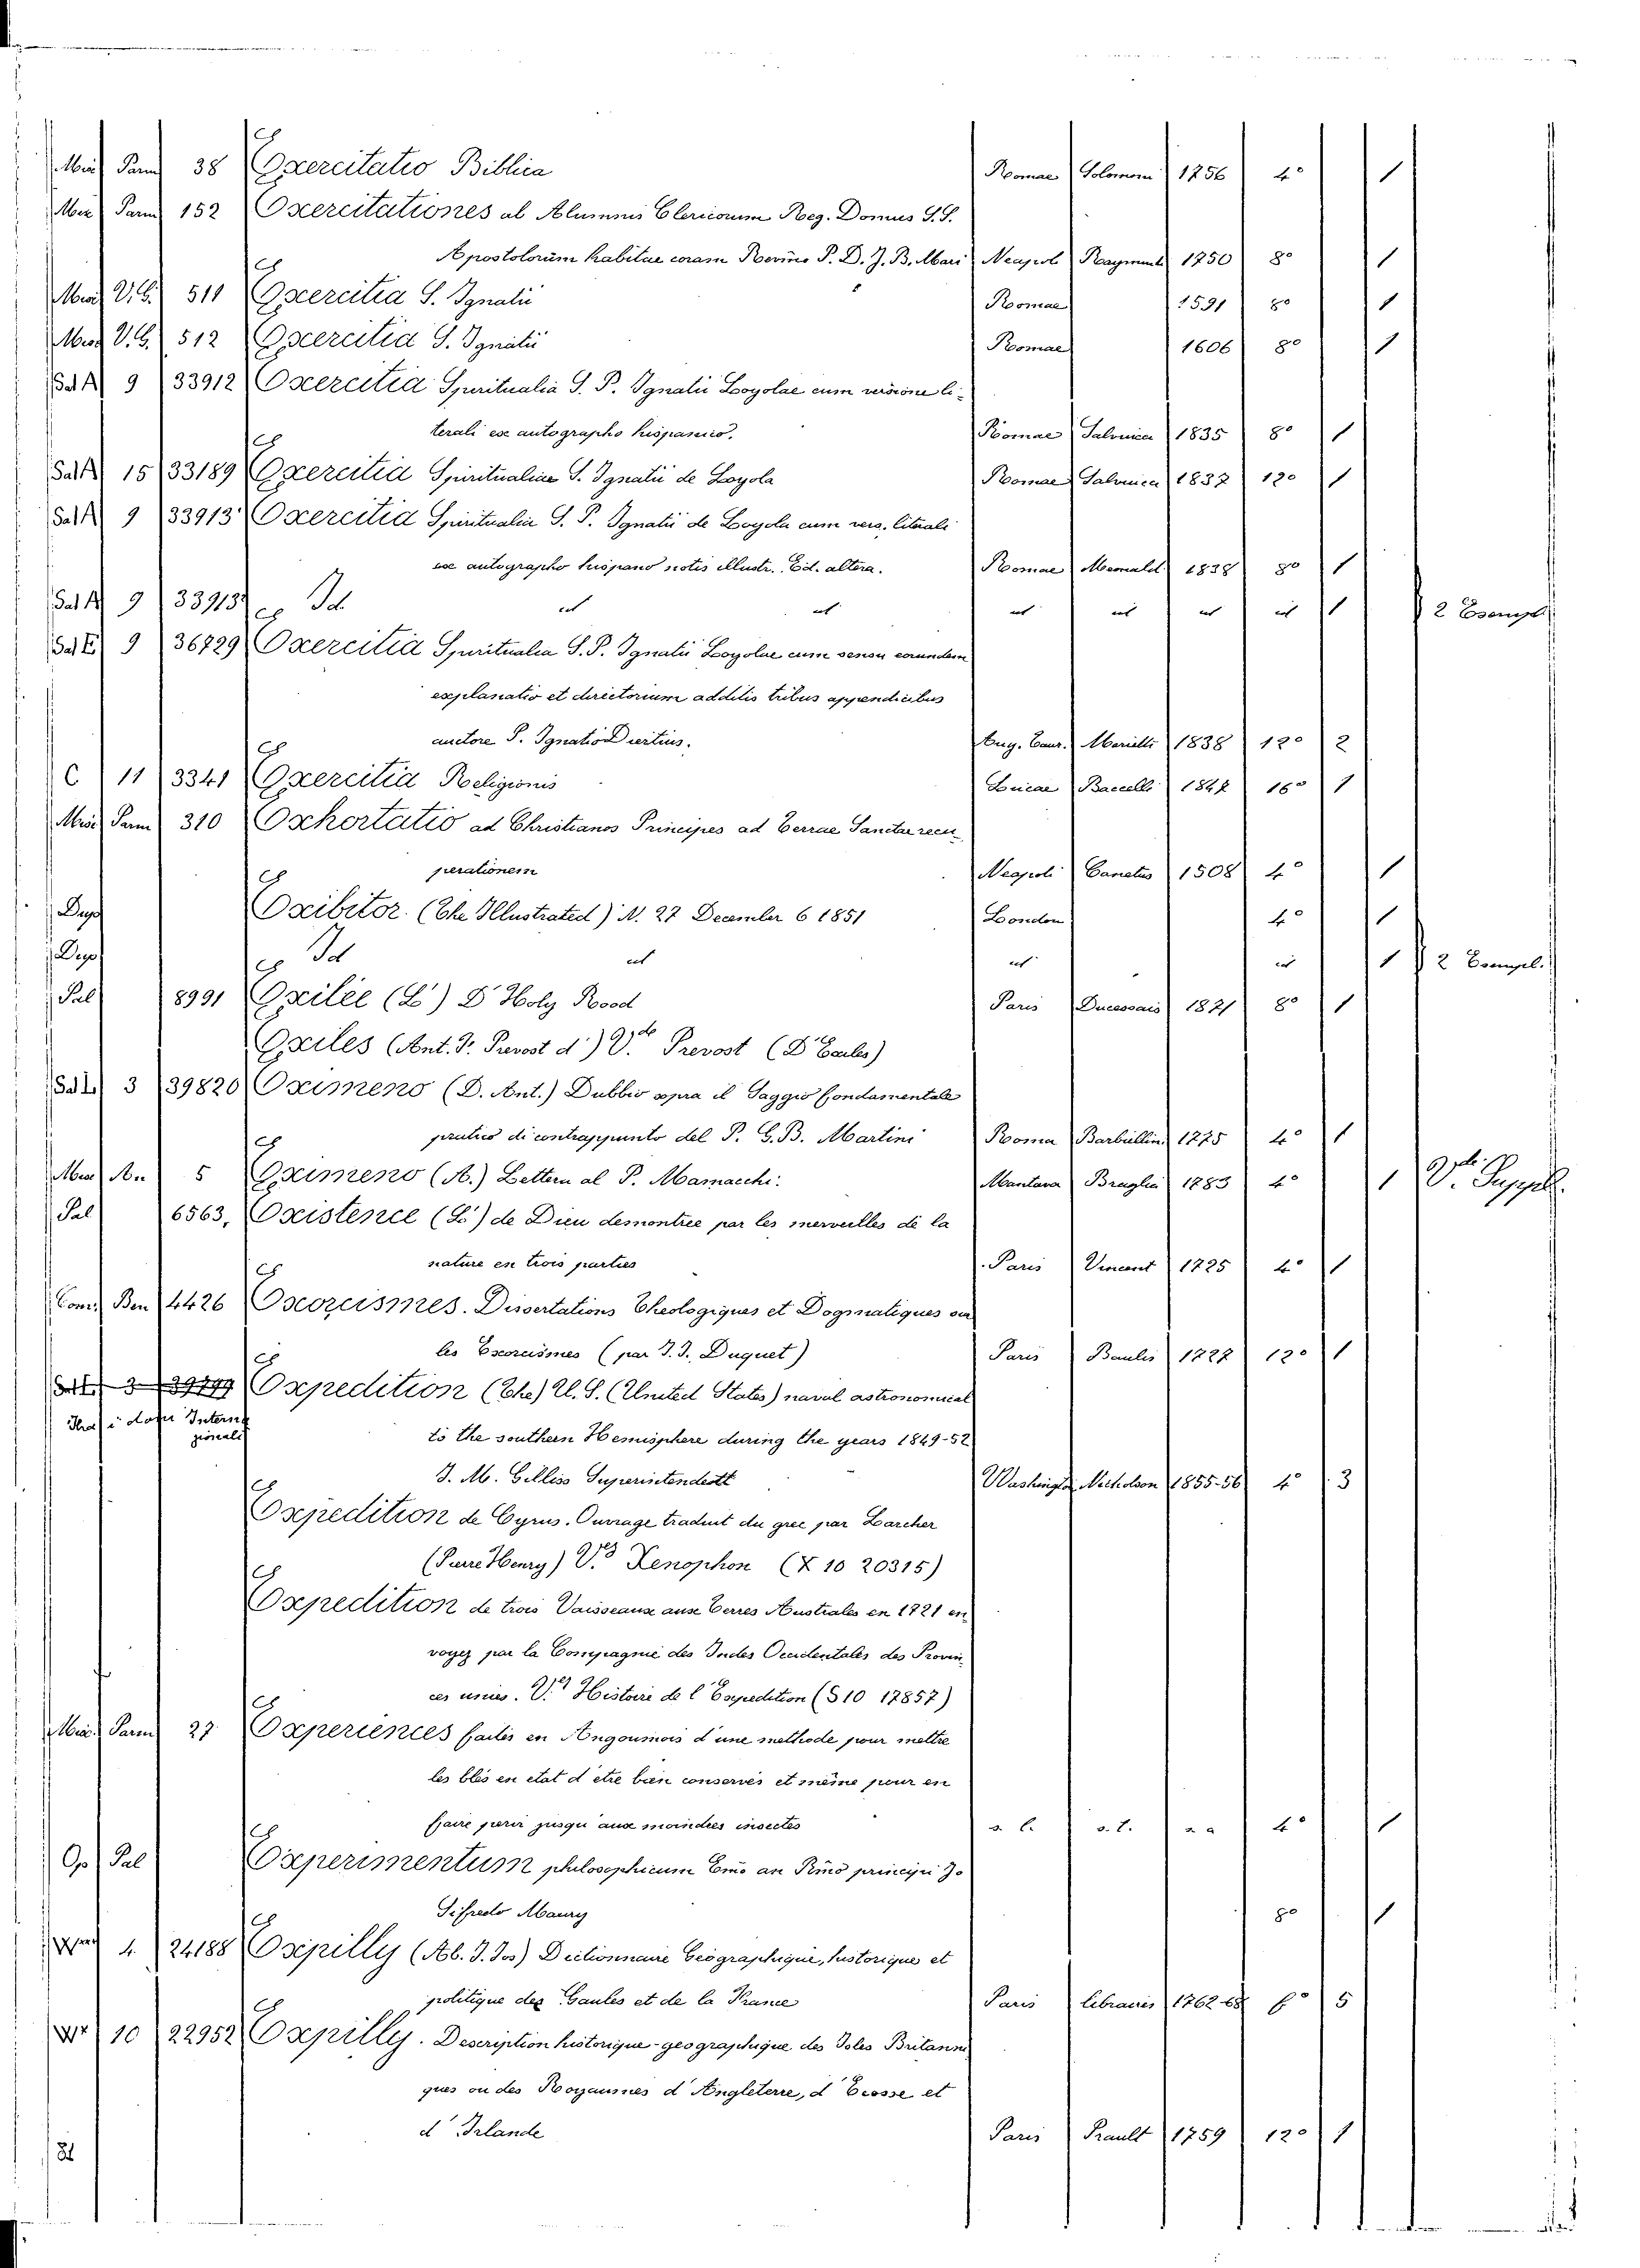 Parm 38 Exercitatio Biblica Romae 1756 4° 1
Parm 152 Exercitationes ab Alumnis Clericorum Reg. Domus S.S.
Apostolorum habitae coram P. D. J. B. Mari Neapol 1750 8° 1
V. E. 511 Exercitia S. Ignatii Romae 1591 8° 1
V. E. 512 Exercitia S. Ignatii Romae 1606 8° 1
9 33912 Exercitia Spiritualia S. P. Ignatii Loyolae cum versione li-
terali ex autographo hispanico. Romae Salviucci 1835 8° 1
15 33189 Exercitia Spiritualia S. Ignatii de Loyola Romae Salviucci 1837 12° 1
9 33913 Exercitia Spiritualia S. P. Ignatii de Loyola cum vers. literali
ex autographo hispano notis illustr. Ed. altera. Romae 1838 8° 1
9 33913 Id. id id id id id id 1 2 Esempl.
9 36729 Exercitia Spiritualia S. P. Ignatii Loyolae cum sensu eorundem
explanatio et directorium additis tribus appendicibus
auctore P. Ignatio Diertins. Aug. Taur. Marietti 1838 12° 2
C 11 3341 Exercitia Religionis Lucae Baccelli 1847 16° 1
Parm 310 Exhortatio ad Christianos Principes ad Terrae Sanctae recu-
perationem Neapoli Canetus 1508 4° 1
Exibitor. (The Illustrated) N. 27 December 6 1851 London 4° 1
Id id id id 1 2 Esempl.
Pal 8991 Exilée (L') D' Holy Rood Paris Ducessois 1821 8° 1
Exiles (Ant. F. Prevost d') V.de Prevost (D'Exiles)
3 39820 Eximeno (D. Ant.) Dubbio sopra il Saggio fondamentale
pratico di contrappunto del P. G. B. Martini Roma Barbiellini 1775 4° 1
5 Eximeno (A.) Lettera al P. Mamacchi. Mantava Braglia 1783 4° 1 V. Suppl.
Pal 6563, Existence (L') de Dieu demontrée par les merveilles de la
nature en trois parties Paris Vincent 1725 4° 1
Ben 4426 Exorcismes. Dissertations Theologiques et Dogmatiques sur
les Exorcismes (par J. J. Duguet) Paris Baulis 1727 12° 1
Expedition (The) U. S. (United States) naval astronomical
to the southern Hemisphere during the years 1849-52
J. M. Gilliss Superintendent Washington Nicholson 1855-56 4° 3
Expedition de Cyrus. Ouvrage traduit du grec par Larcher
(Pierre Henry) V. Xenophon (X 10 20315)
Expedition de trois Vaisseaux aux Terres Australes en 1721 en
voyez par la Compagnie des Indes Occidentales des Provin
ces unies. V. Histoire de l'Expedition (S 10 17857)
Parm 27 Experiences faites en Angoumois d'une methode pour mettre
les blés en etat d'etre bien conservés et même pour en
faire perir jusqu'aux moindres insectes s. l. s. t. s. a 4° 1
Op Pal Experimentum philosophicum
Sifredo Maury 8° 1
4 24188 Expilly (Ab. J. Jos) Dictionnaire Geographique, historique et
politique des Gaules et de la France Paris libraires 1762-68 f° 5
10 22952 Expilly. Description historique-geographique des Isles Britanni
ques ou des Royaumes d'Angleterre, d'Ecosse et
d'Irlande Paris Prault 1759 12° 1